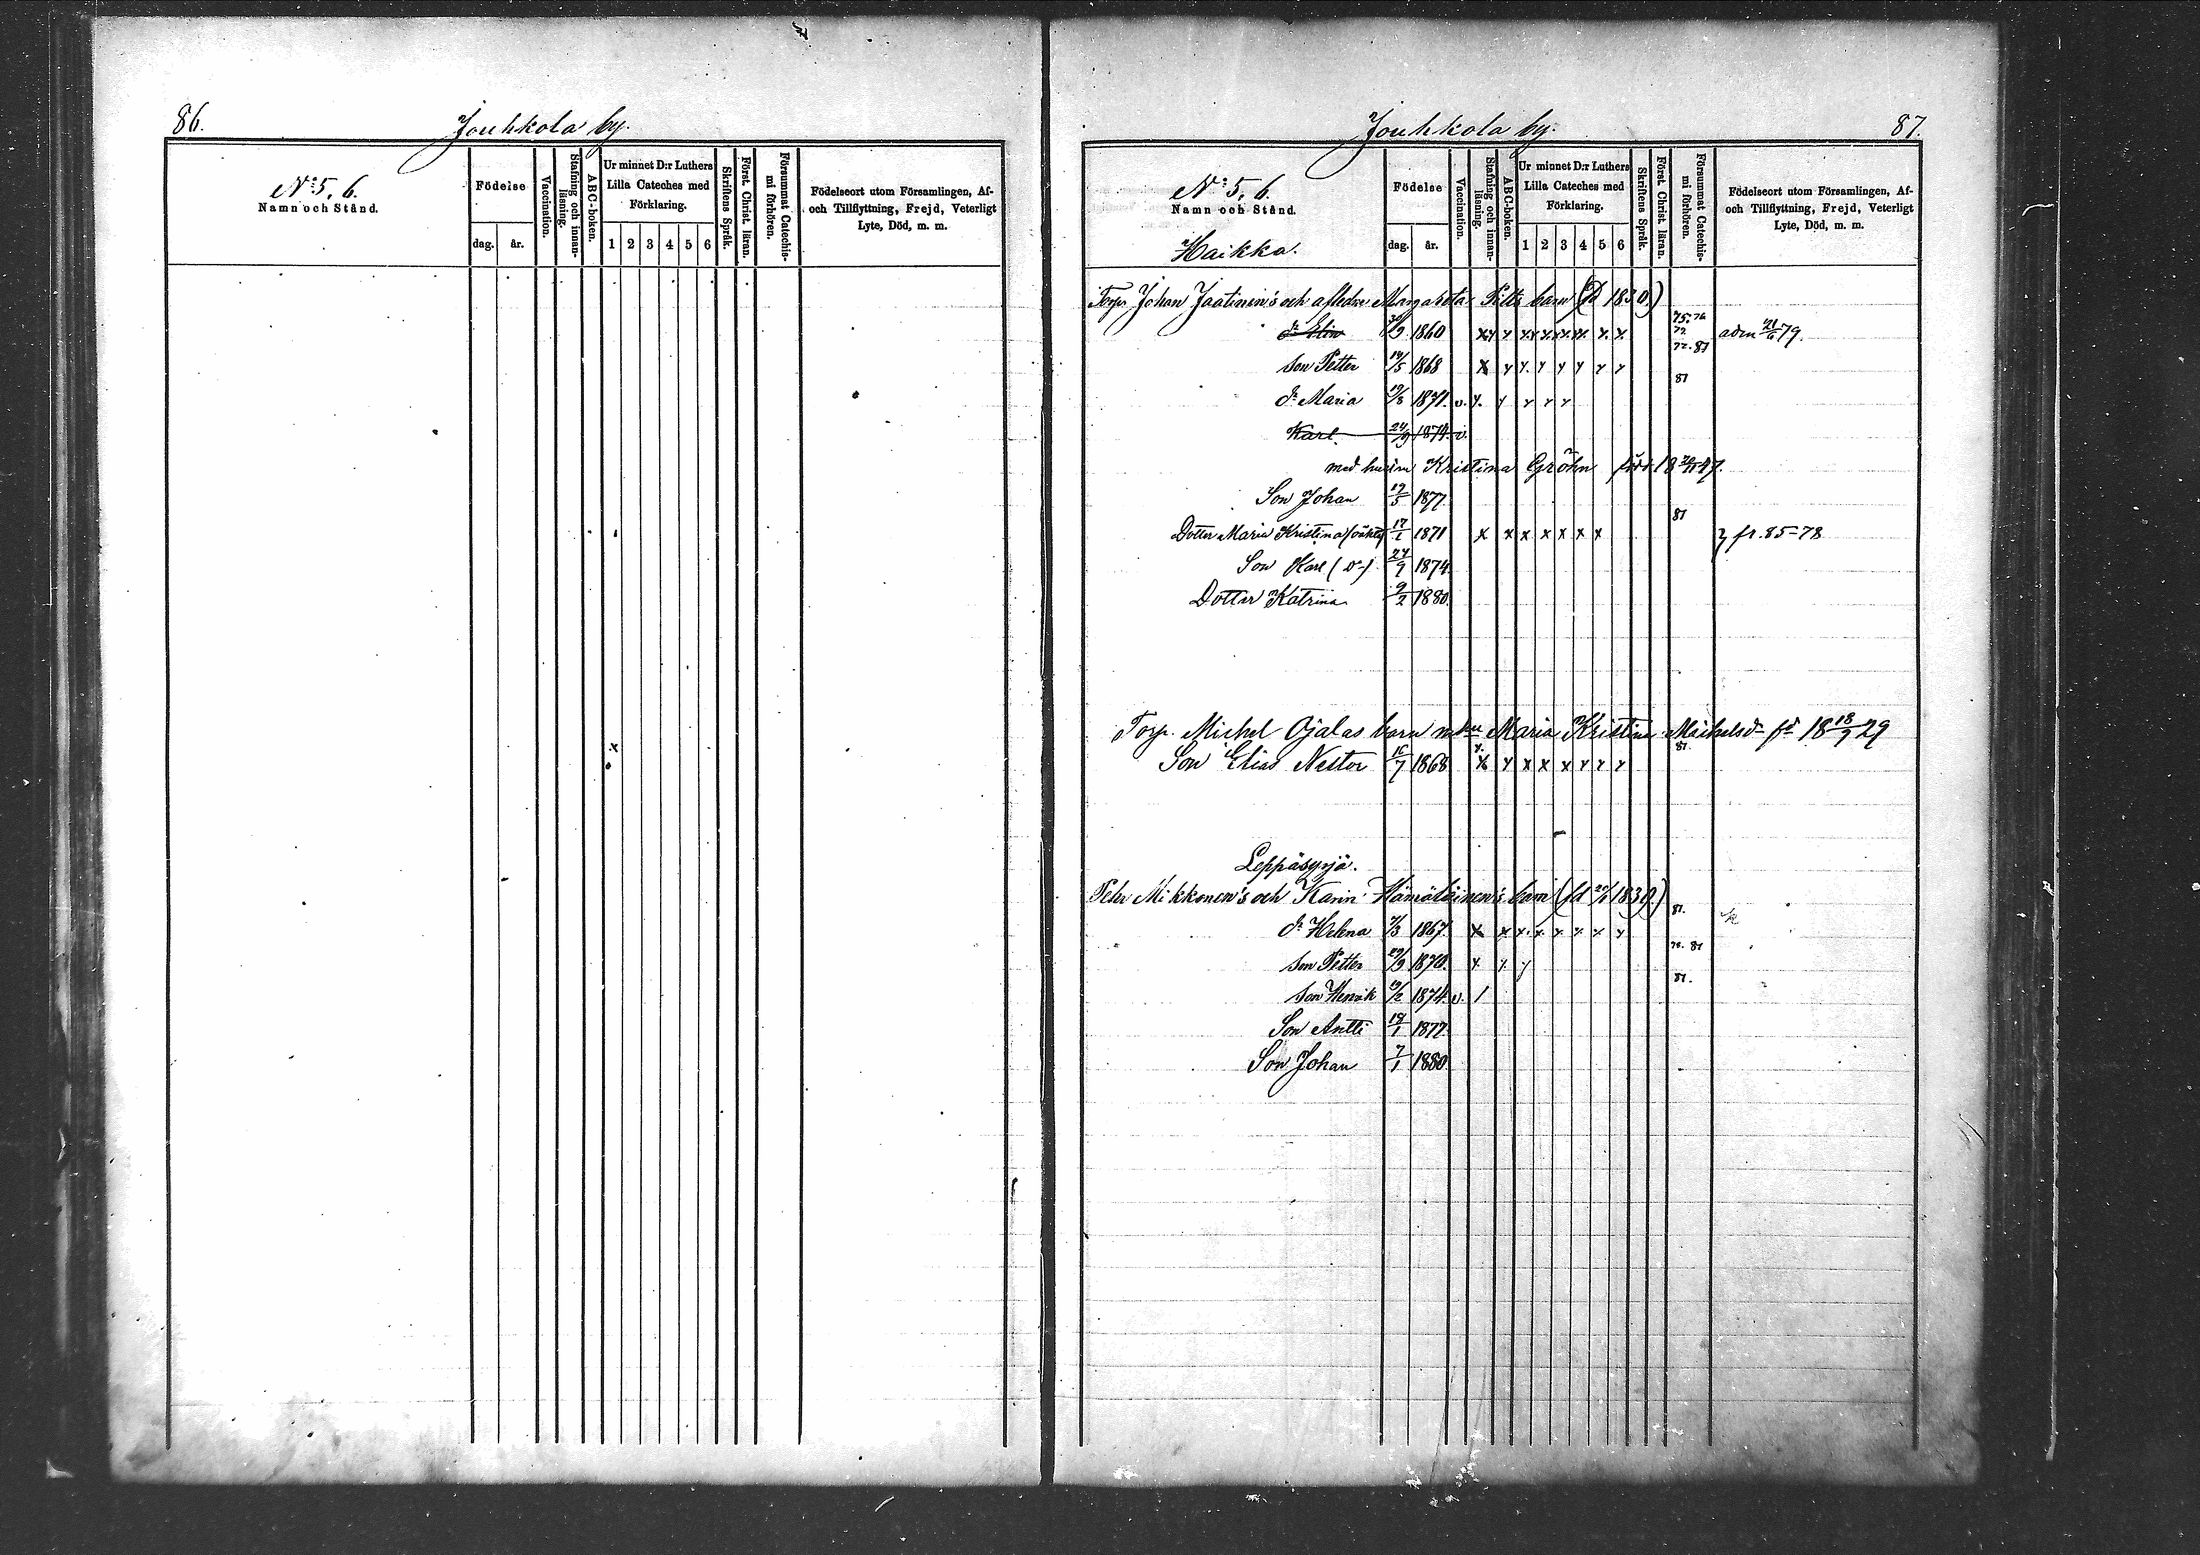 86.
Jouhkola by.
N:o 5, 6.
Namn och Stånd.
Födelse
dag. år.
Vaccination.
Stafning och innanläsning.
ABC-boken.
Ur minnet D:r Luthers
Lilla Cateches med
Förklaring.
1 2 3 4 5 6
Skriftens Språk.
Först. Christ. läran.
Försummat Catechismi förhören.
Födelseort utom Församlingen, Af-
och Tillflyttning, Frejd, Veterligt
Lyte, Död, m. m.
x
Jouhkola by.
87.
N:o 5, 6.
Namn och Stånd.
Haikka.
Födelse
dag. år.
Vaccination.
Stafning och innanläsning.
ABC-boken.
Ur minnet D:r Luthers
Lilla Cateches med
Förklaring.
1 2 3 4 5 6
Skriftens Språk.
Först. Christ. läran.
Försummat Catechismi förhören.
Födelseort utom Församlingen, Af-
och Tillflyttning, Frejd, Veterligt
Lyte, Död, m. m.
Torp. Johan Jaatinen's och afledne Margareta barn (fd 1830.)
dr Elin 1860 75. 76 adm 21/6 79.
son Petter 19/5 1868 x y y. y y y y y 81
dr Maria 19/8 1871. v. y. y y y y 81
Karl. 24/9 1874. v.
med hustrun Kristina Gröhn född 18 47.
Son Johan 17/5 1877.
Dotter Maria Kristina (oäkta) 17/1 1871 x x x x x x x 81 fr. 85-78
Son Karl (d:o) 24/9 1874.
Dotter Katrina 9/2 1880.
Torp. Michel Ojalas barn m hu Maria Kristina Michelsdr fd 18 18/9 29
Son Elias Nestor 16/7 1868 x y x x x y y y 81.
Leppäsyrjä.
Pehr Mikkonen's och Karin Hämäläinen's barn (fd 1830.)
dr Helena 1867. x x y. x y y y y 81.
son Petter 29/9 1870. y y. y 78. 81
son Henrik 19/2 1874. v. 1 81.
Son Antti 18/1 1877.
Son Johan 7/1 1880.